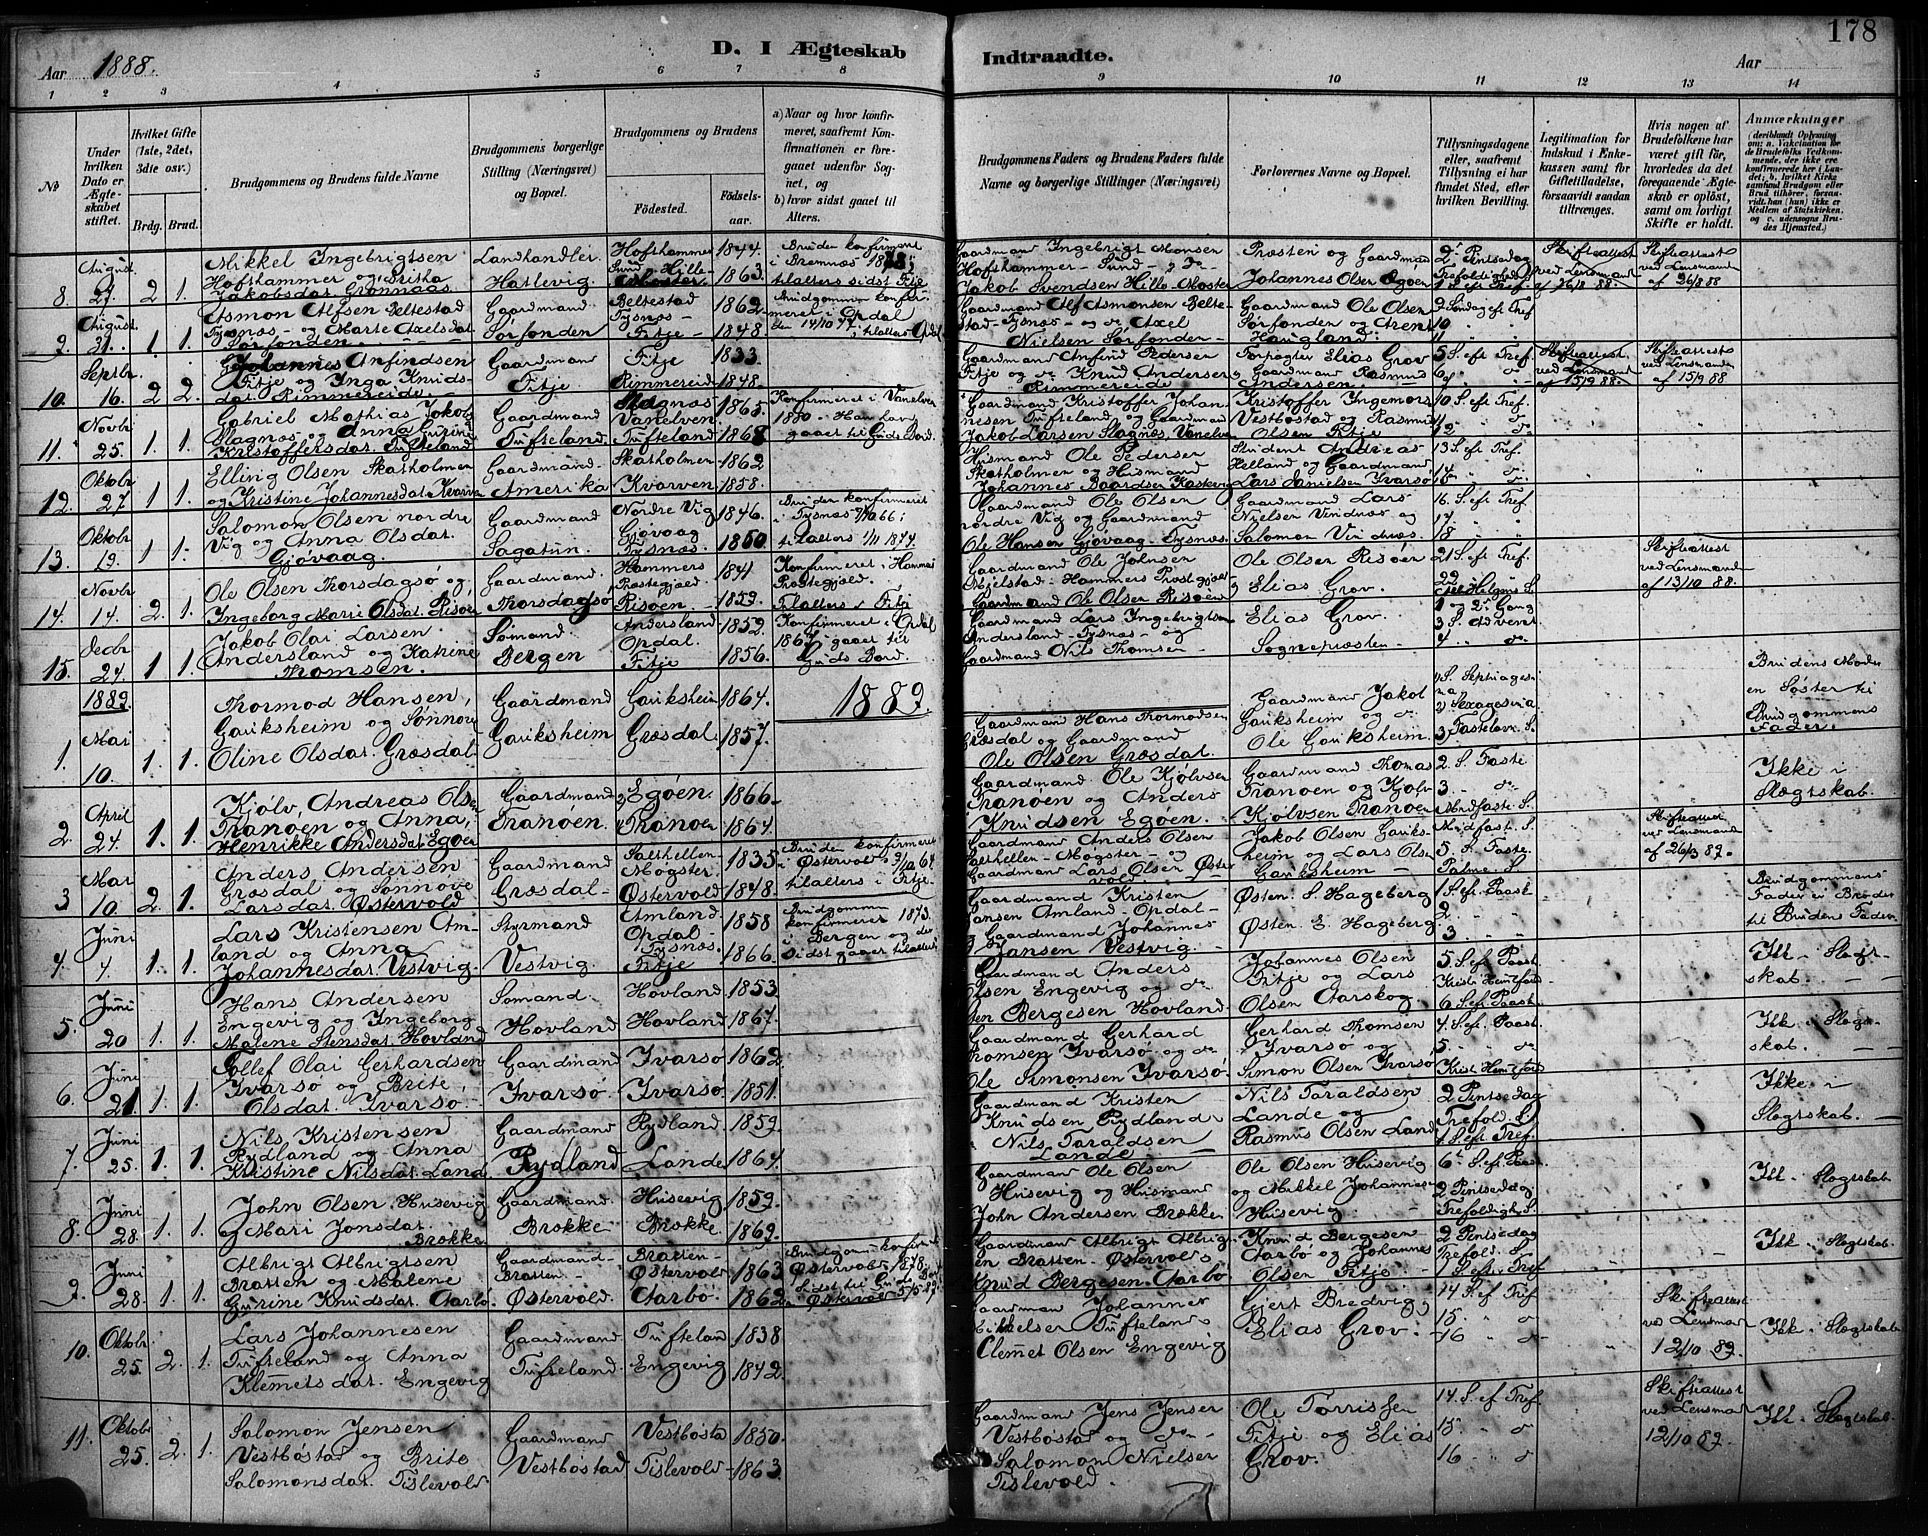 178
Aar 1888.
D. I Ægteskab
Indtraadte.
Aar
1 2 3 4 5 6 7 8 9 10 11 12 13 14
No
Under hvilken Dato er Ægteskabet stiftet.
Hvilket Gifte (1ste, 2det, 3die osv.)
Brdg. Brud.
Brudgommens og Brudens fulde Navne
Brudgommens borgerlige Stilling (Næringsvei) og Bopæl.
Brudgommens og Brudens
Fødested.
Fødselsaar.
a) Naar og hvor konfirmeret, saafremt Konfirmationen er foregaaet udenfor Sognet, og
b) hvor sidst gaaet til Alters.
Brudgommens Faders og Brudens Faders fulde Navne og borgerlige Stillinger (Næringsvei)
Forlovernes Navne og Bopæl.
Tillysningsdagene eller, saafremt Tillysning ei har fundet Sted, efter hvilken Bevilling.
Legitimation for Indskud i Enkekassen samt for Giftetilladelse, forsaavidt saadan tiltrænges.
Hvis nogen af Brudefolkene har været gift før, hvorledes da det foregaaende Ægteskab er opløst, samt om lovligt Skifte er holdt.
Anmærkninger
8. August 27. 2 1.
Mikkel Ingebrigtsen
Hofshammer og Britha
Jakobsdat. Grønnaas
Landhandler
Hatlevig
Hofshammer Sund 1844.
1863.
Bruden konfirmert
i Bremnes 1878;
tilalters sidst Fitje
Gaardmand Ingebrigt Monsen
Hofshammer - Sund - og do
Jakob Svendsen Hille - Moster
Præsten og Gaardmand
Johannes Olsen Egøen
2. Pintsedag
Trefoldigheds
1 S. eft Tref.
Skifteattest
ved Lensmand
af 26/8 88.
Skifteattest
ved Lensmand
af 26/8 88
9. August 31. 1 1.
Asmon Alfsen Beltestad
Tysnæs - og Marte Axelsdat
Sørfonden
Gaardmand
Sørfonden
Beltestad
Tysnæs - 1862
Fitje - 1848.
Brudgommen konfirmeret i Opdal
den 14/10 77; tilalters Opdal
Gaardmand Alf Asmonsen Beltestad - Tysnæs - og do Axel
Nielsen Sørfonden
Gaardmand Ole Olsen
Sørfonden og Arent
Haugland.
9 Søndag eft Tref
10
11
10. Septbr 16. 2 2.
Johannes Anfindsen
Fitje og Inga Knudsdat Rimmereide
Gaardmand
Fitje
Fitje 1833
Rimmereide 1848.
Gaardmand Anfind Pedersen
Fitje og do Knud Andersen
Rimmereide
Forpagter Elias Grov
og Gaardmand Rasmus
Andersen
5 S. eft Tref.
Skifteattest
ved Lensmand
af 15/9 88.
Skifteattest
ved Lensmanden
af 15/9 88
11. Novbr 25. 1 1.
Gabriel Mathias Jakobs
Slagnæs og Anna Gurine
Kristoffersdat Tufteland
Gaardmand
Tufteland
Slagnæs
Vanelven 1865
Tufteland 1868
Konfirmeret i Vanelven
1880 - Han har
gaaet til Guds Bord.
Gaardmand Kristoffer Johannesen Tufteland og Gaardmand
Jakob Larsen Slagnæs, Vanelven
Kristoffer Ingemors
Vestbøstad og Rasmus
Olsen Fitje
10 S. eft Tref.
11
12
12. Oktobr 27. 1 1.
Elling Olsen Skatholmen
og Kristine Johannesdat Kvarven
Gaardmand
Amerika
Skatholmen 1862
Kvarven 1858.
Husmand Ole Pedersen
Skatholmen og Husmand
Johannes Baardsen
Student Andreas
Helland og Gaardmand
Lars Danielsen Ivarsø
13 S. eft Tref.
14
15
13. Oktobr 19. 1 1.
Salomon Olsen nordre
Vig og Anna Olsdat
Gjøvaag.
Gaardmand
Sagatun.
Nordre Vig 1846.
Gjøvaag
Tysnæs. 1850
Bruden konfirmeret
i Tysnæs 7/10 66;
tilalters 1/11 1874.
Gaardmand Ole Olsen
nordre Vig og Gaardmand
Ole Hansen Gjøvaag - Tysnæs
Gaardmand Lars
Nielsen Vindnæs og
Salomon Vindnæs
16 S. eft Tref
17
18
14. Novbr 14. 2 1.
Ole Olsen Thorsdagsø og
Ingeborg Marie Olsdat. Risøen
Gaardmand
Thorsdagsø
Hammers
Præstegjæld 1841.
Risøen - 1859.
Konfirmeret i Hammer
Præstegjæld.
Tilalters i Fitje
Gaardmand Ole Johnsen
Mjelstad - Hammers Præstegjæld
Gaardmand Ole Olsen Risøen
Ole Olsen Risøen
og Elias Grov.
21 S. eft Tref.
22
Skifteattest
ved Lensmanden
af 13/10 88.
15. Decbr 24. 1 1.
Jakob Olai Larsen
Andersland og Katrine
Thomsen.
Sømand
Bergen
Andersland 1852
Opdal
Fitje 1856.
Konfirmeret i Opdal
1867 - gaaet til
Guds Bord.
Gaardmand Lars Ingebrigtsen
Andersland - Tysnæs - og
Gaardmand Nils Thomsen
Elias Grov.
Sognepræsten
1 og 2 Gang
3 S. Advent
4 do
1889
1889.
1. Mai 10. 1. 1.
Thormod Hansen,
Gaasheim og Sønnove
Oline Olsdat. Græsdal.
Gaardmand
Gaasheim
1864.
Græsdal 1857.
Gaardmand Hans Thormodsen
Græsdal og Gaardmand
Ole Olsen Græsdal.
Gaardmand Jakob
og do
Ole
S. Septuagesima
S. Sexagesima
Fastelavn S.
Brudens Moder
en Søster til
Brudgommens
Fader.
2. April 24. 1. 1.
Kjølv Andreas Olsen
Tranøen og Anna,
Henrikke Andersdat Egøen
Gaardmand
Tranøen.
Egøen. 1866
Tranøen 1864.
Gaardmand Ole Kjølvsen
Tranøen og Anders
Knudsen Egøen.
Gaardmand Thomas
Tranøen og Kjølv
Kjølvsen Tranøen
2. S. Faste
3. do
Midfaste S.
Ikke i
Slægtskab.
3 Mai 10. 2. 1.
Anders Andersen
Græsdal og Sønnove
Larsdat. Østervold
Gaardmand
Græsdal
Salthellen
Møgster. 1835
Østervold 1848.
Bruden konfirmeret
i Østervold 2/10 64
tilalters i Fitje.
Gaardmand Anders Olsen
Salthellen - Møgster - og
Gaardmand Lars Olsen Østervold
Jakob Olsen
og Lars Olsen
Midfaste S.
5. S. Faste.
Palme S.
Skifteattest
ved Lensmand
af 26/3 89.
4. Juni 4. 1. 1.
Lars Kristensen Amland og Anna
Johannesdat. Vestvig.
Styrmand
Vestvig.
Amland
Opdal 1858
Tysnæs.
Fitje 1866.
Brudgommen
konfirmeret 1873.
i Bergen og der
sidst gaaet tilalters
Gaardmand Kristen
Hansen Amland - Opdal -
og Gaardmand Johannes
Jansen Vestvig.
Østen. S. Hageberg
Østen. E. Hageberg
1 S. eft. Paask
2
3
Brudgommens
Fader er Broder
til Brudens Fader.
5. Juni 20 1. 1.
Hans Andersen
Engevig og Ingeborg
Malene Stensdat. Hovland
Sømand
Hovland
Hovland 1853
Hovland 1867.
Gaardmand Anders
Olsen Engevig og do
Sten Bergesen Hovland
Johannes Olsen
Fitje og Lars
Olsen Aarskog
5. S. eft Paask
Kristi Himmelfart
6. S. eft. Paask
Ikk. i Slægtskab.
6. Juni 21. 1. 1.
Tollef Olai Gerhardsen
Ivarsø og Brite
Olsdat. Ivarsø.
Gaardmand
Ivarsø
Ivarsø 1862
Ivarsø. 1851.
Gaardmand Gerhard
Thomsen Ivarsø og do
Ole Simonsen Ivarsø.
Gerhard Thomsen
Ivarsø og
Simon Olsen Ivarsø
4. S. eft. Paask.
5. do
Ikk. i Slægtskab.
7. Juni 25. 1. 1.
Nils Kristensen
Rydland og Anna
Kristine Nilsdat. Lande
Gaardmand
Rydland
Rydland 1859.
Lande 1864.
Gaardmand Kristen
Knudsen Rydland
Nils Taraldsen
Lande
Nils Taraldsen
Lande og
Rasmus Olsen Lande
2 Pintsedag
Trefold. S.
1 S. eft Tref.
Ikke i
Slægtskab.
8. Juni 28. 1. 1.
John Olsen Husevig
og Mari Jonsdat.
Brække.
Gaardmand
Brække
Husevig 1859.
Brække 1869.
Gaardmand Ole Olsen
Husevig og Husmand
John Andersen Brække
Ole Olsen Husevig
og Mikkel Johannesen
Husevig.
6. S. eft. Paask.
2 Pintsedag
Trefoldigh. S.
Ikk. i Slægtskab
9. Juni 28. 1. 1.
Albrigt Albrigtsen
Bratten og Malene
Gurine Knudsdat. Aarbø.
Gaardmand
Bratten
Østervold.
Bratten
Østervold 1863
Aarbø. 1862
Gaardmand Albrigt Albrigtsen Bratten - Østervold
Knud Bergesen Aarbø
Knud Bergesen
Aarbø og Johannes
Olsen Fitje
2 Pintsedag
Trefold. S.
1 S. eft Tref
Ikk. i Slægtskab.
10. Oktobr 25. 2. 1.
Lars Johannesen
Tufteland og Anna
Klemetsdat. Engevig
Gaardmand
Tufteland.
Tufteland 1838
Engevig 1842.
Gaardmand Johannes
Mikkelsen Tufteland
Clemet Olsen Engevig
Gjert Bredvig
Elias Grov.
14. S. ef Tref
15.
16
Skifteattest
ved Lensmand
12/10 89.
Ikk. i Slægtskab
11. Oktobr 25. 2. 1.
Salomon Jensen
Vestbøstad og Brite
Salomonsdat. Tislevold
Gaardmand
Vestbøstad
Vestbøsta 1850.
Tislevold 1863
Gaardmand Jens Jensen
Vestbøstad og do
Salomon Nielsen
Tislevold.
Ole Torrissen
Fitje og Elias
Grov.
14. S. ef Tref.
15
16
Skifteattest
ved Lensmand
12/10 89.
Ikk. i Slægtskab.